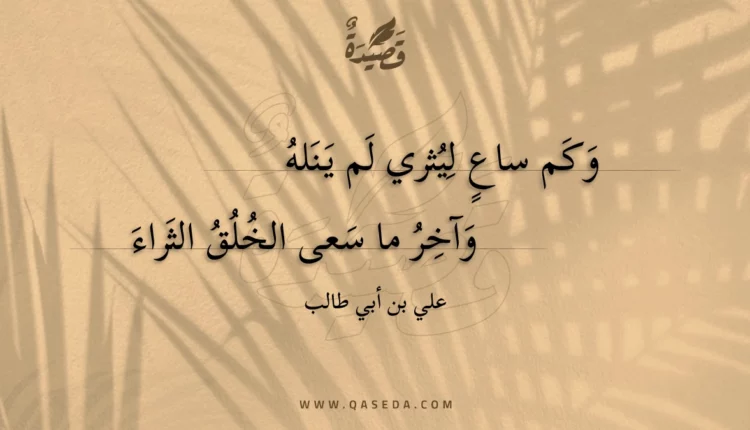 قَصِيْدَةٌ
وَكَم ساعٍ لِيُثري لَم يَنَلهُ
وَآخِرُ ما سَعى الخُلُقُ الثَراءَ
علي بن أبي طالب
WWW.QASEDA.COM